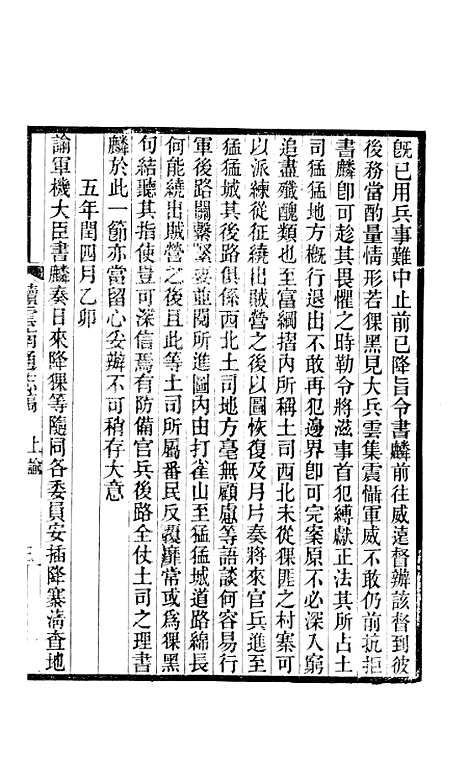 旣已用兵事難中止前已降旨令書麟前往威遠督辦該督到彼
後務當酌量情形若猓黑見大兵雲集震懾軍威不敢仍前抗拒
書麟卽可趁其畏懼之時勒令將滋事首犯縛獻正法其所占土
司猛猛地方槪行退出不復敢再犯邊界卽可完案原不必深入窮
追盡殲醜類也至富綱摺內所稱土司西北未從猓匪之村寨可
以派練從征繞出賊營之後以圖恢復及月片奏將來官兵進至
猛猛城其後路俱係西北土司地方毫無顧慮等語談何容易行
軍後路關繫緊要並閱所進圖內由打雀山至猛猛城道路綿長
何能繞出賊營之後且此等土司所屬番民反覆靡常或爲猓黑
句結聽其指使豈可深信焉有防備官兵後路全仗土司之理書
麟於此一節亦當留心妥辦不可稍存大意
五年閏四月乙卯
諭軍機大臣書麟奏日來降猓等隨同各委員安插降寨淸查地
續雲南通志稿 上諭 三